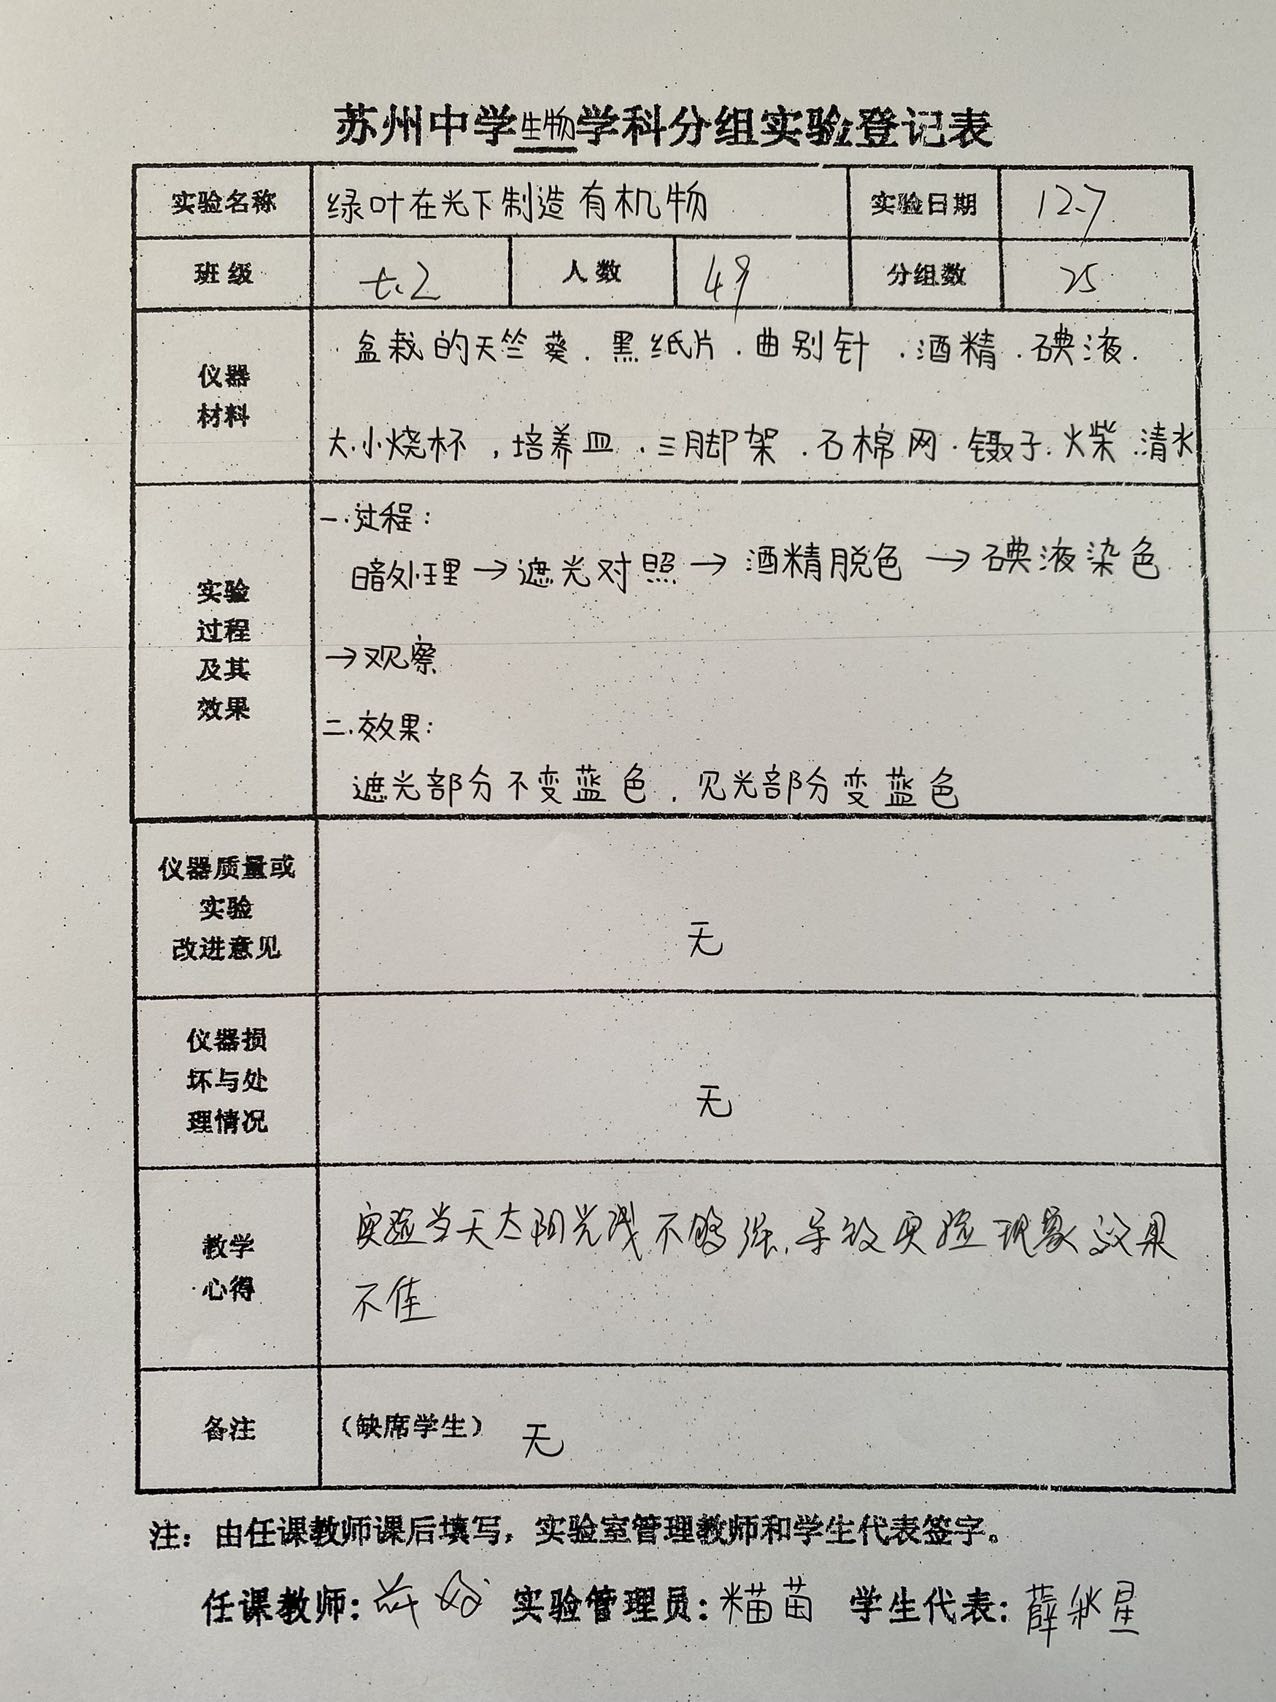 苏州中学生物学科分组实验登记表
实验名称 绿叶在光下制造有机物 实验日期 12.7
班级 七.2 人数 49 分组数 25
仪器
材料
盆栽的天竺葵.黑纸片.曲别针.酒精.碘液.
大.小烧杯,培养皿.三脚架.石棉网.镊子.火柴.清水
实验
过程
及其
效果
一.过程:
暗处理→遮光对照→酒精脱色→碘液染色
→观察
二.效果:
遮光部分不变蓝色,见光部分变蓝色
仪器质量或
实验
改进意见
无
仪器损
坏与处
理情况
无
教学
心得
实验当天太阳光线不够强,导致实验现象效果
不佳
备注 (缺席学生) 无
注:由任课教师课后填写,实验室管理教师和学生代表签字。
任课教师: 实验管理员: 苗 学生代表:薛秋星